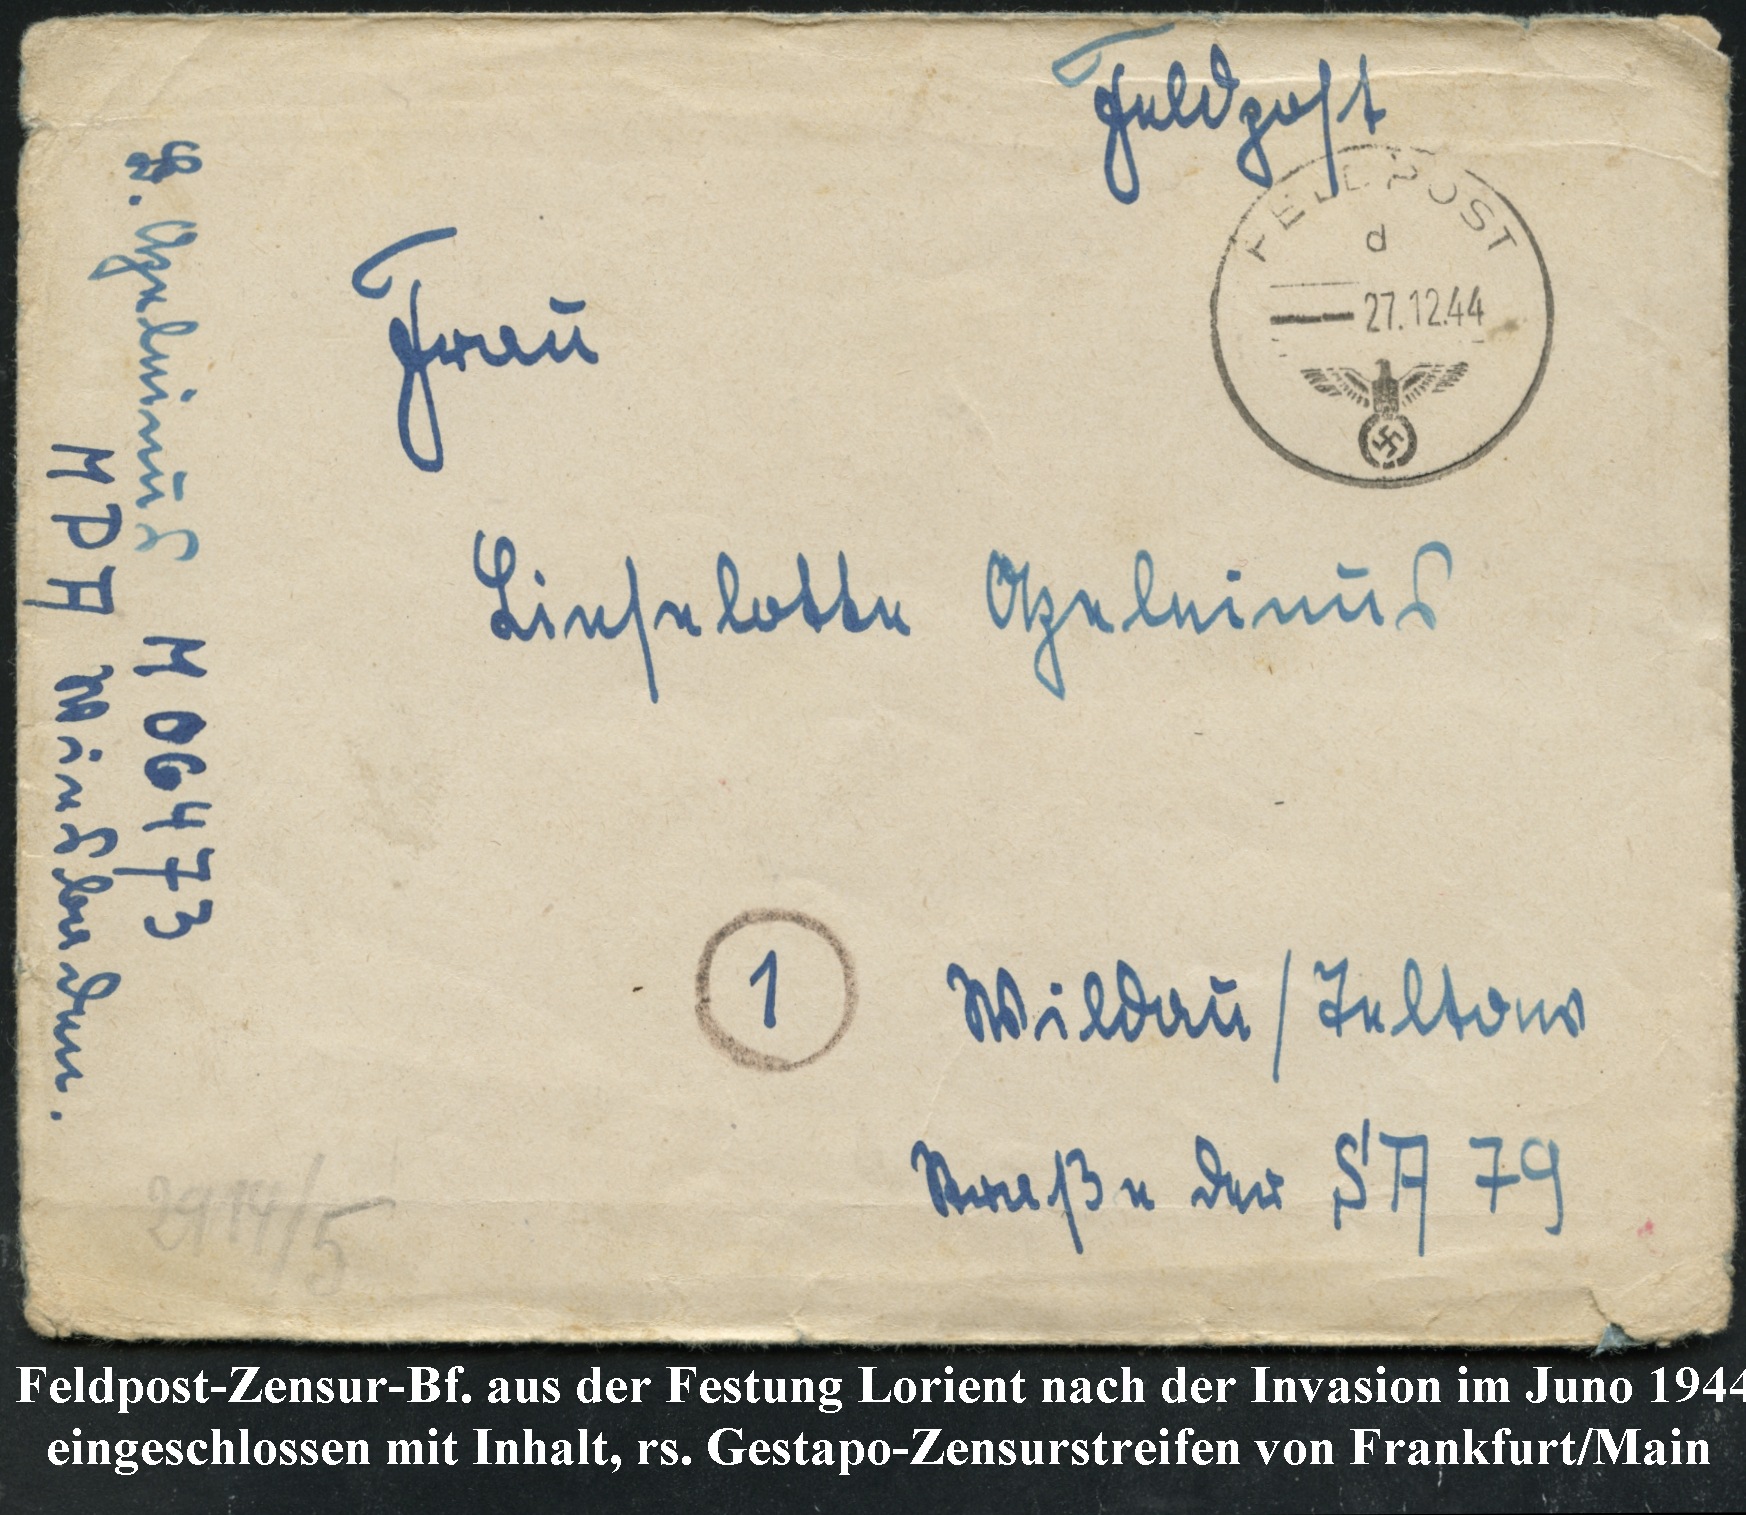 Feldpost
FELDPOST
d
27.12.44
Frau
Lieselotte
1
Wildau/Teltow
Straße der SA 79
M 06473
MPA Wiesbaden.
2914/5
Feldpost-Zensur-Bf. aus der Festung Lorient nach der Invasion im Juno 1944
eingeschlossen mit Inhalt, rs. Gestapo-Zensurstreifen von Frankfurt/Main